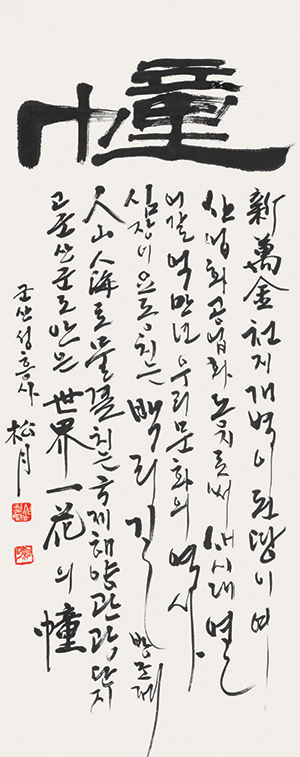 幢
新萬金 천지개벽이 된 땅이여
산업화 공업화 농지로써 새시대 열
어갈 억만년 우리문화의 역사
심장이 요동치는 백리길 방조제
人山人海로 물결치는 국제해양관광단지
고군산군도 안은 世界一花의 幢
군산 성흥사 松月